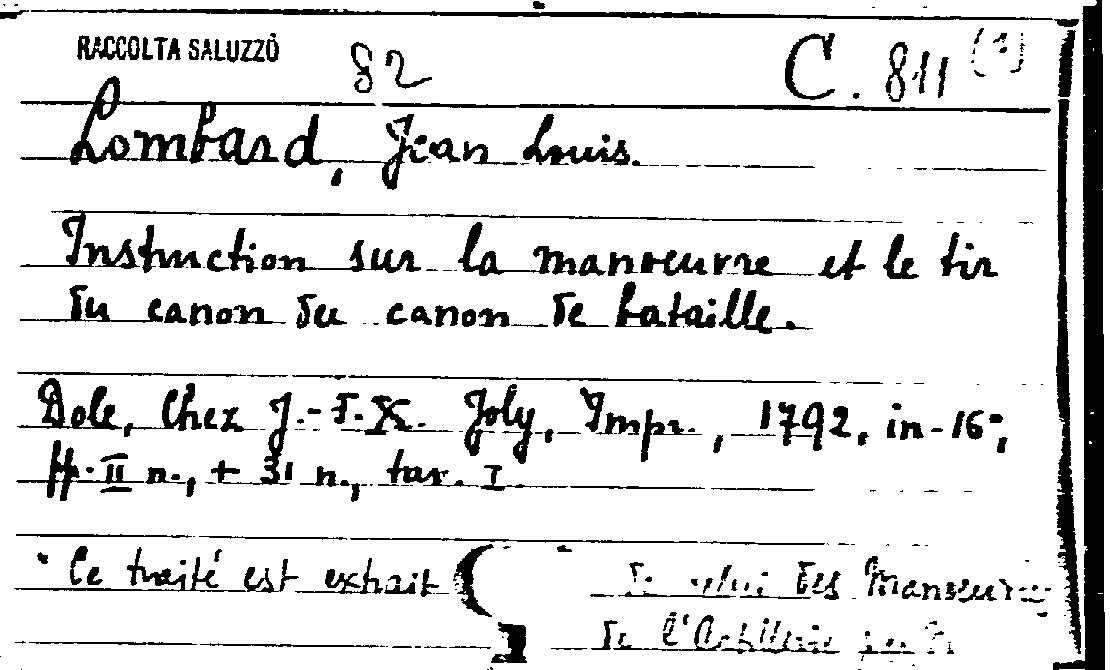 RACCOLTA SALUZZO 82 C. 811 (1)
Lombard, Jean Louis.
Instruction sur la manoeuvre et le tir
du canon du canon de bataille.
Dole, Chez J.-F.X. Joly, Impr., 1792, in-16°,
pp. II n., + 31 n., tav. I.
Ce traité est extrait de celui des Manoeuvres
de l'Artillerie par